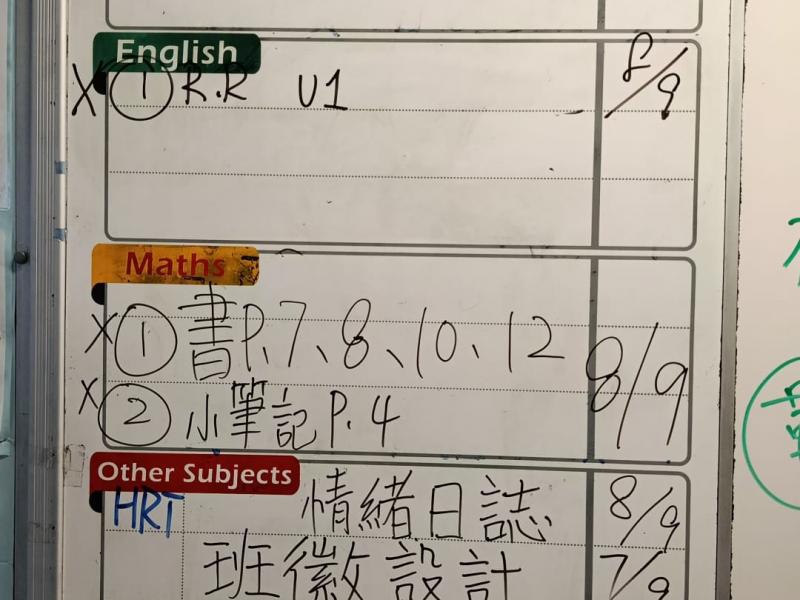 English
X ① R.R U1 8/9
Maths
X ① 書P.7、8、10、12
X ② 小筆記 P.4 8/9
Other Subjects
HRT 情緒日誌 8/9
班徽設計 7/9